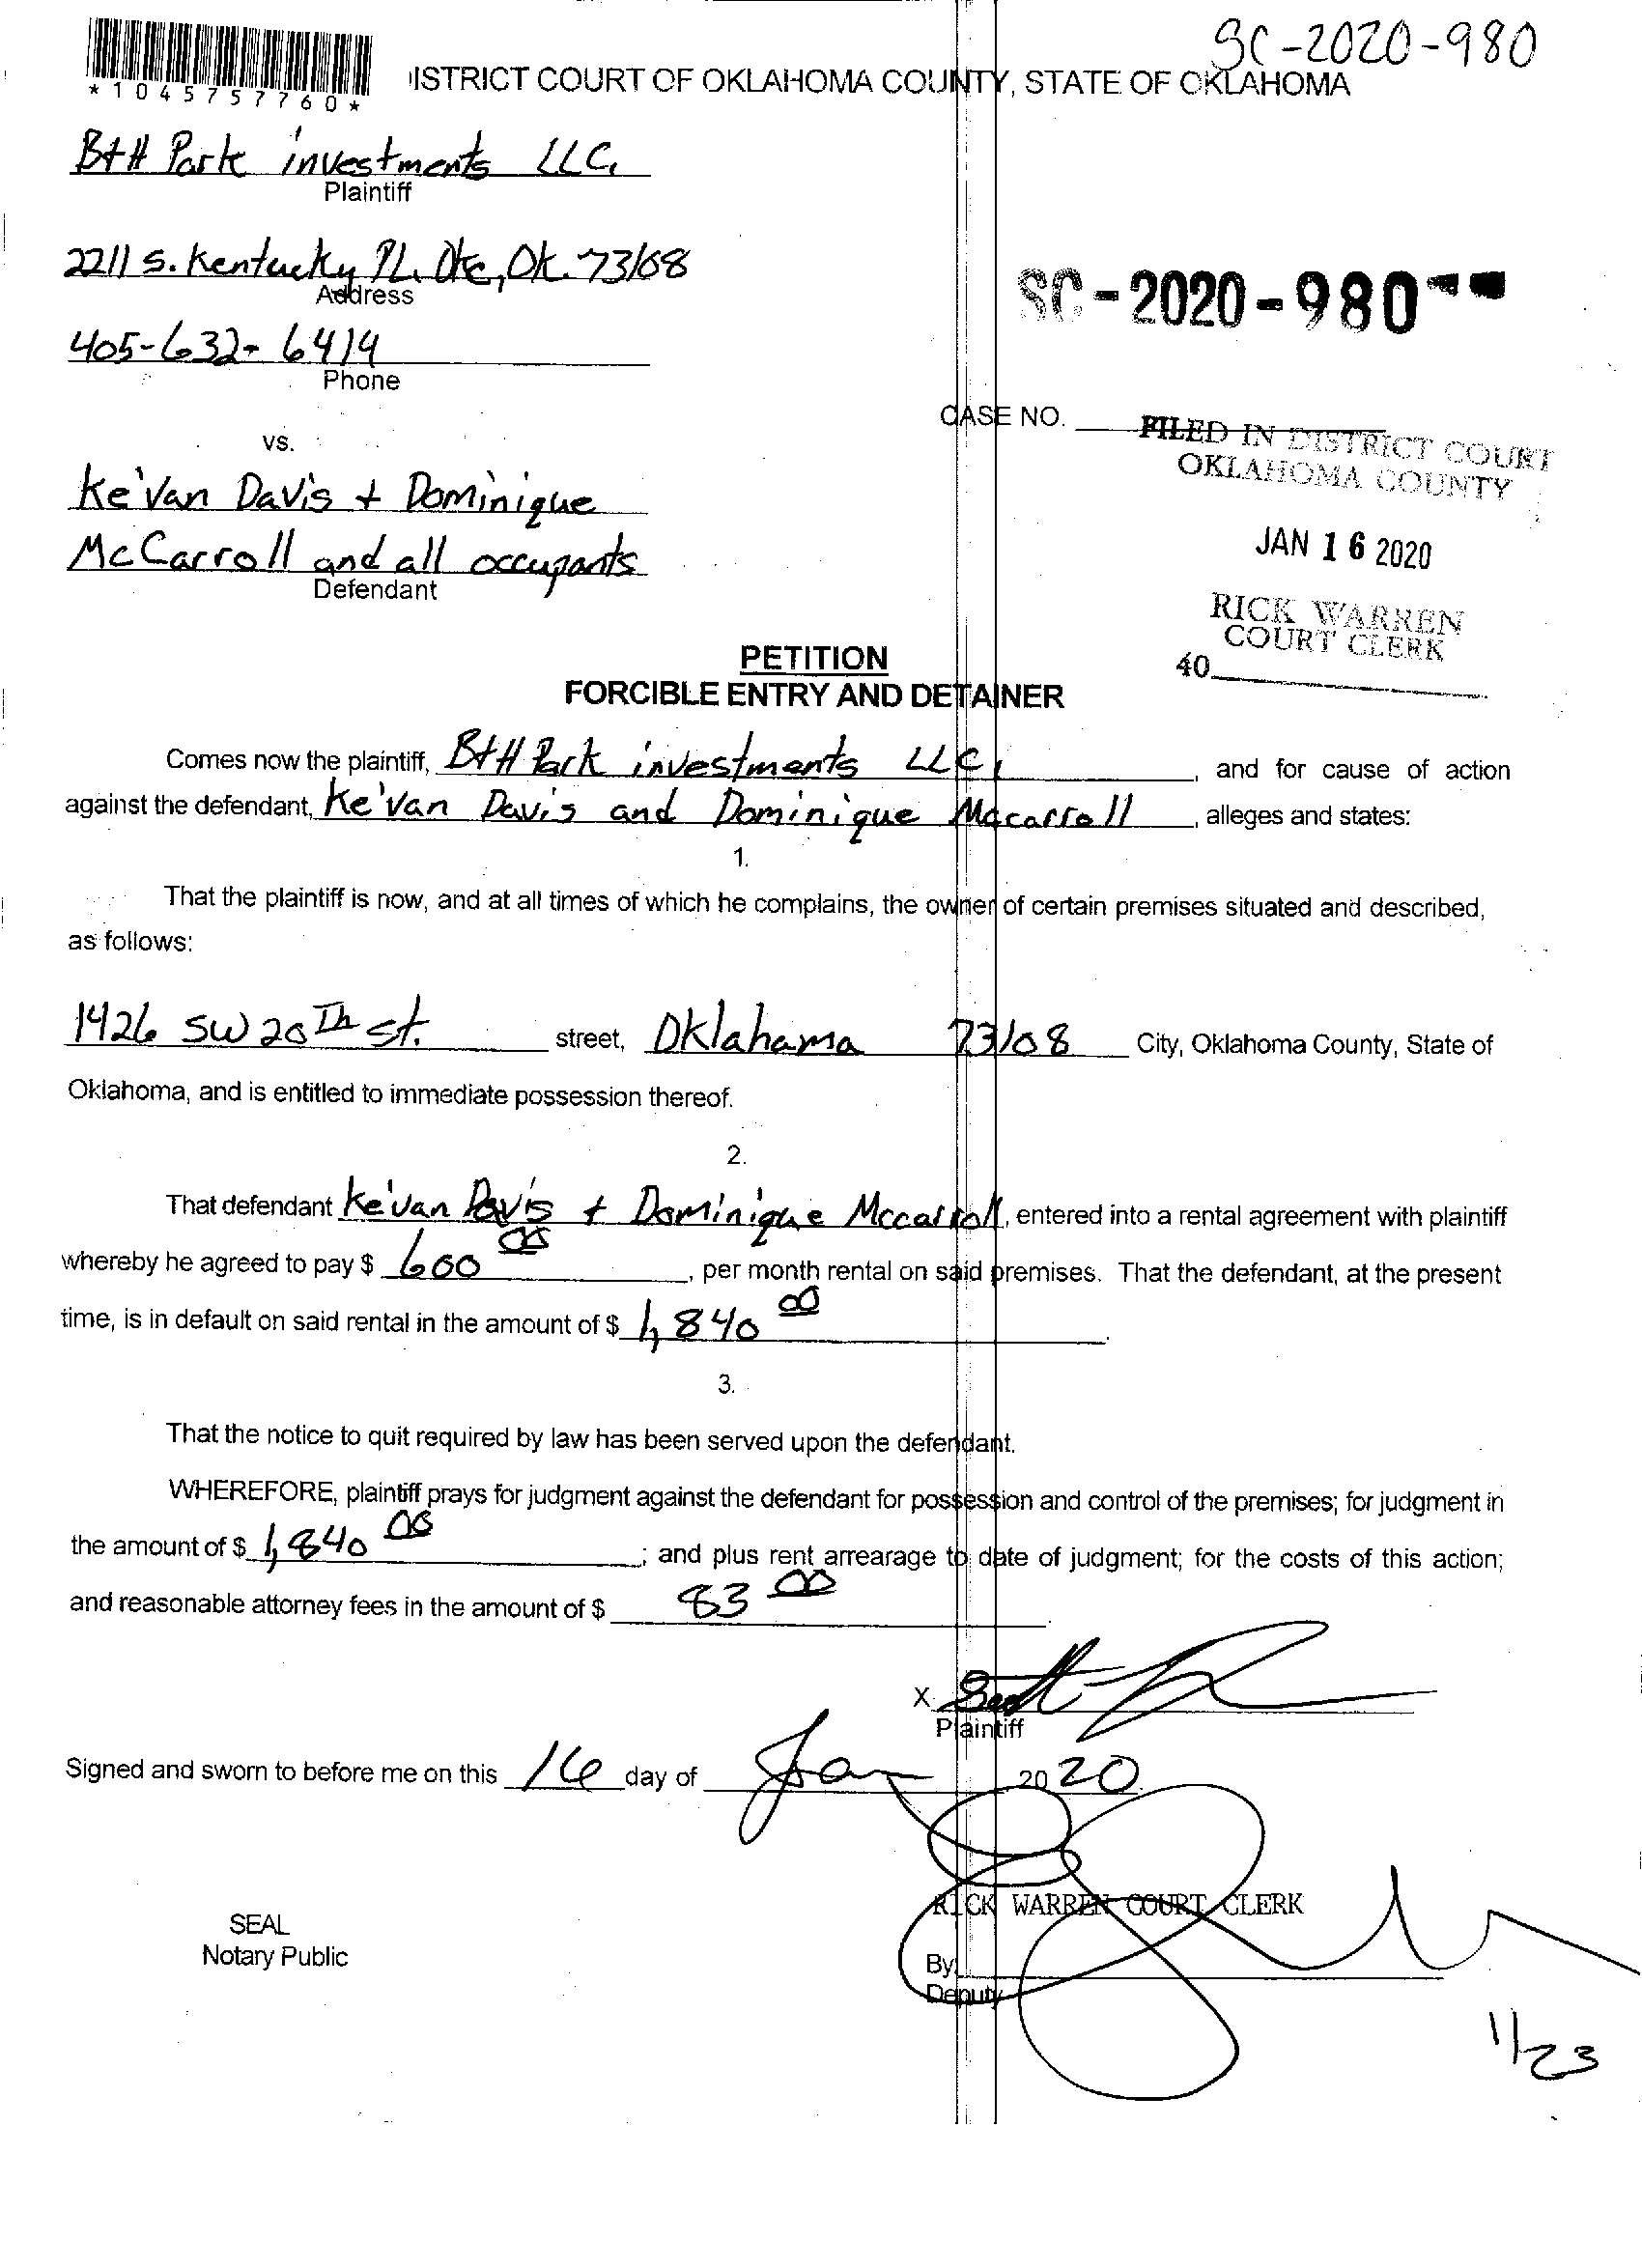 SC-2020-980
*1045757760*
ISTRICT COURT OF OKLAHOMA COUNTY, STATE OF OKLAHOMA
B+H Park investments LLC,
Plaintiff
2211 S. Kentucky Pl. Okc, Ok. 73108
Address
SC-2020-980
405-632-6414
Phone
CASE NO.
vs.
FILED IN DISTRICT COURT
OKLAHOMA COUNTY
Ke'Van Davis + Dominique
McCarroll and all occupants
Defendant
JAN 16 2020
RICK WARREN
COURT CLERK
40
PETITION
FORCIBLE ENTRY AND DETAINER
Comes now the plaintiff, B+H Park investments LLC, , and for cause of action
against the defendant, Ke'Van Davis and Dominique Mccarroll , alleges and states:
1.
That the plaintiff is now, and at all times of which he complains, the owner of certain premises situated and described,
as follows:
1426 SW 20th St. street, Oklahama 73108 City, Oklahoma County, State of
Oklahoma, and is entitled to immediate possession thereof.
2.
That defendant Ke'Van Davis + Dominique Mccarroll, entered into a rental agreement with plaintiff
whereby he agreed to pay $ 600 00 , per month rental on said premises. That the defendant, at the present
time, is in default on said rental in the amount of $ 1,840 00 .
3.
That the notice to quit required by law has been served upon the defendant.
WHEREFORE, plaintiff prays for judgment against the defendant for possession and control of the premises; for judgment in
the amount of $ 1,840 00 ; and plus rent arrearage to date of judgment; for the costs of this action;
and reasonable attorney fees in the amount of $ 83 00 .
X
Plaintiff
Signed and sworn to before me on this 16 day of Jan 2020
RICK WARREN COURT CLERK
SEAL
Notary Public
By
Deputy
1/23